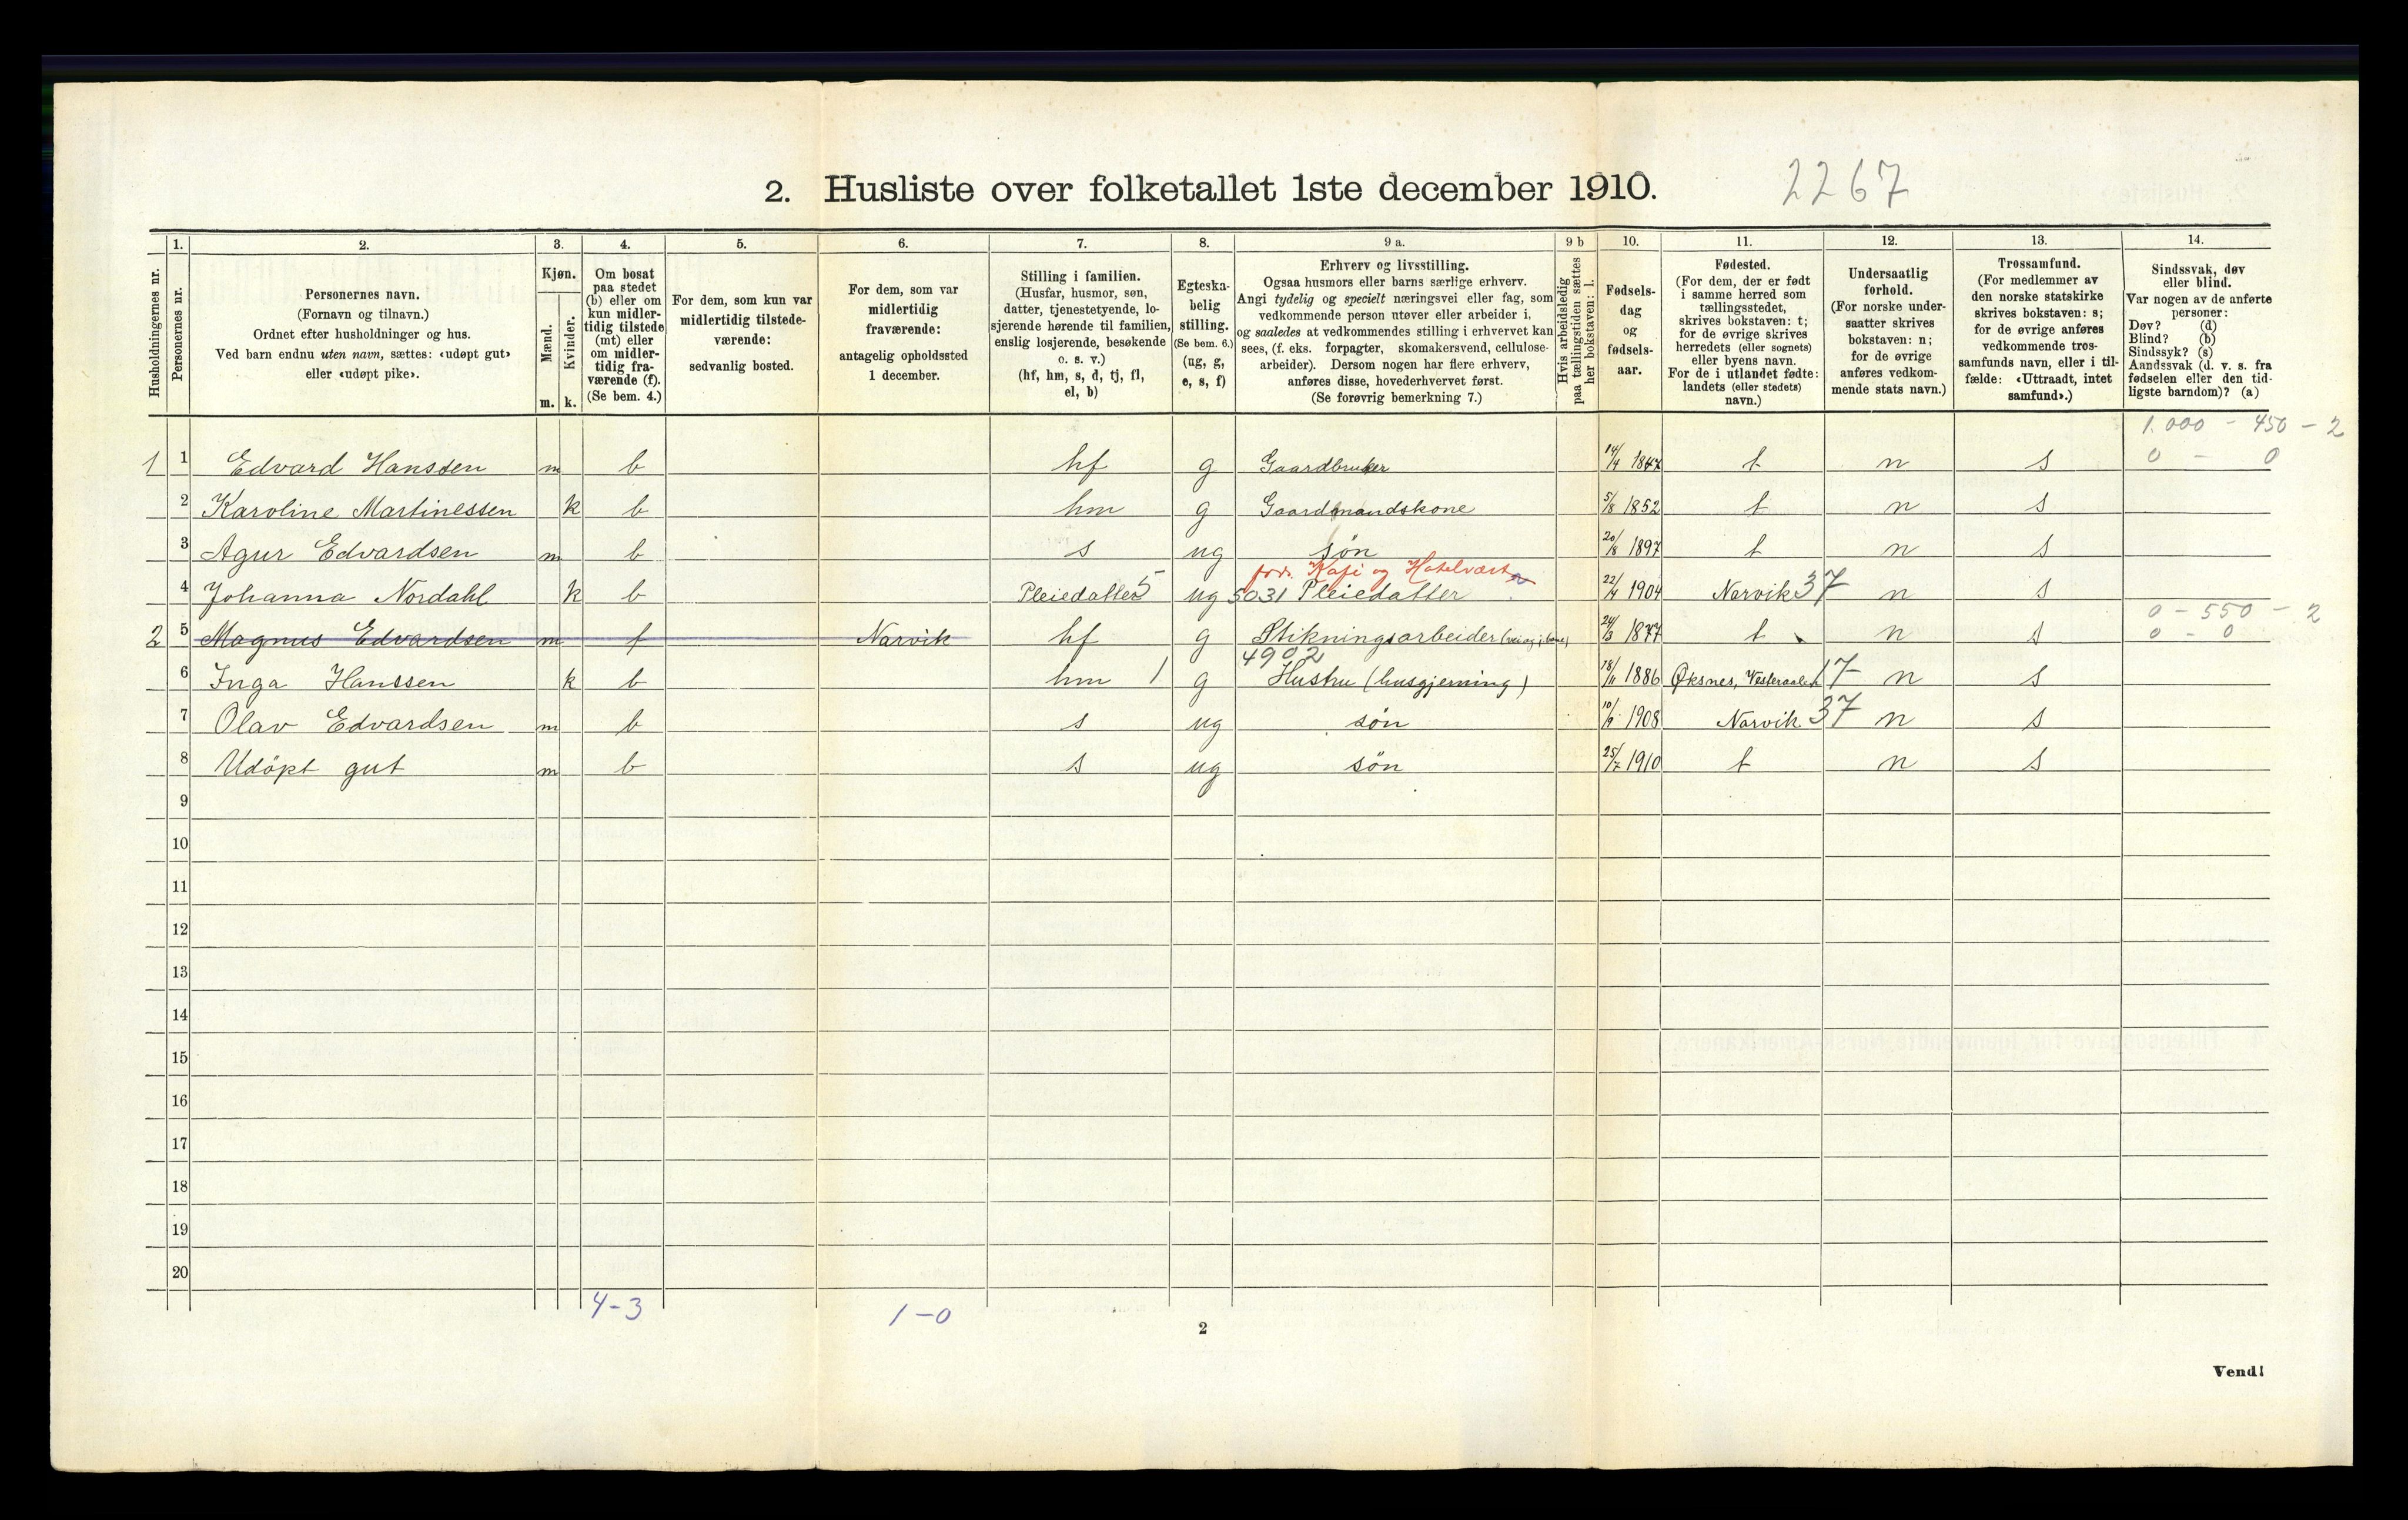 2. Husliste over folketallet 1ste december 1910.
2267
1. 2. 3. 4. 5. 6. 7. 8. 9 a. 9 b 10. 11. 12. 13. 14.
Husholdningernes nr.
Personernes nr.
Personernes navn.
(Fornavn og tilnavn.)
Ordnet efter husholdninger og hus.
Ved barn endnu uten navn, sættes: «udøpt gut»
eller «udøpt pike».
Kjøn.
Mænd.
Kvinder.
m. k.
Om bosat
paa stedet
(b) eller om
kun midler-
tidig tilstede
(mt) eller
om midler-
tidig fra-
værende (f).
(Se bem. 4.)
For dem, som kun var
midlertidig tilstede-
værende:
sedvanlig bosted.
For dem, som var
midlertidig
fraværende:
antagelig opholdssted
1 december.
Stilling i familien.
(Husfar, husmor, søn,
datter, tjenestetyende, lo-
sjerende hørende til familien,
enslig losjerende, besøkende
o. s. v.)
(hf, hm, s, d, tj, fl,
el, b)
Egteska-
belig
stilling.
(Se bem. 6.)
(ug, g,
e, s, f)
Erhverv og livsstilling.
Ogsaa husmors eller barns særlige erhverv.
Angi tydelig og specielt næringsvei eller fag, som
vedkommende person utøver eller arbeider i,
og saaledes at vedkommendes stilling i erhvervet kan
sees, (f. eks. forpagter, skomakersvend, cellulose-
arbeider). Dersom nogen har flere erhverv,
anføres disse, hovederhvervet først.
(Se forøvrig bemerkning 7.)
Hvis arbeidsledig
paa tællingstiden sættes
her bokstaven: l.
Fødsels-
dag
og
fødsels-
aar.
Fødested.
(For dem, der er født
i samme herred som
tællingsstedet,
skrives bokstaven: t;
for de øvrige skrives
herredets (eller sognets)
eller byens navn.
For de i utlandet fødte:
landets (eller stedets)
navn.)
Undersaatlig
forhold.
(For norske under-
saatter skrives
bokstaven: n;
for de øvrige
anføres vedkom-
mende stats navn.)
Trossamfund.
(For medlemmer av
den norske statskirke
skrives bokstaven: s;
for de øvrige anføres
vedkommende tros-
samfunds navn, eller i til-
fælde: «Uttraadt, intet
samfund».)
Sindssvak, døv
eller blind.
Var nogen av de anførte
personer:
Døv? (d)
Blind? (b)
Sindssyk? (s)
Aandssvak (d. v. s. fra
fødselen eller den tid-
ligste barndom)? (a)
1.000 - 450 - 2
1 1 Edvard Hanssen m b hf g Gaardbruker 14/4 1847 t n s 0 - 0
2 Karoline Martinessen k b hm g Gaardmandskone 5/8 1852 t n s
3 Agur Edvardsen m b s ug søn 20/8 1897 t n s
fors. Kafe og Hotelvært
4 Johanna Nordahl k b Pleiedatter 5 ug 5031 Pleiedatter 22/4 1904 Narvik 37 n s
0 - 550 - 2
2 5 Magnus Edvardsen m f Narvik hf g Stikningsarbeider 24/3 1877 t n s 0 - 0
4902
6 Inga Hanssen k b hm 1 g Hustru (husgjerning) 18/11 1886 Øksnes, Vesteraalen 17 n s
7 Olav Edvardsen m b s ug søn 10/9 1908 Narvik 37 n s
8 Udöpt gut m b s ug søn 25/7 1910 t n s
9
10
11
12
13
14
15
16
17
18
19
20
4-3 1-0
2
Vend!